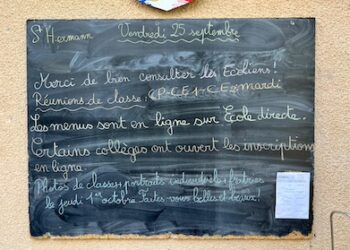 St Hermann Vendredi 25 septembre
Merci de bien consulter les Ecoliens!
Réunions de classe: CP-CE1+CE2 mardi
Les menus sont en ligne sur Ecole directe.
Certains collèges ont ouvert les inscriptions
en ligne
Photos de classes+portraits individuels+fratries
le jeudi 1er octobre Faites-vous belles et beaux!